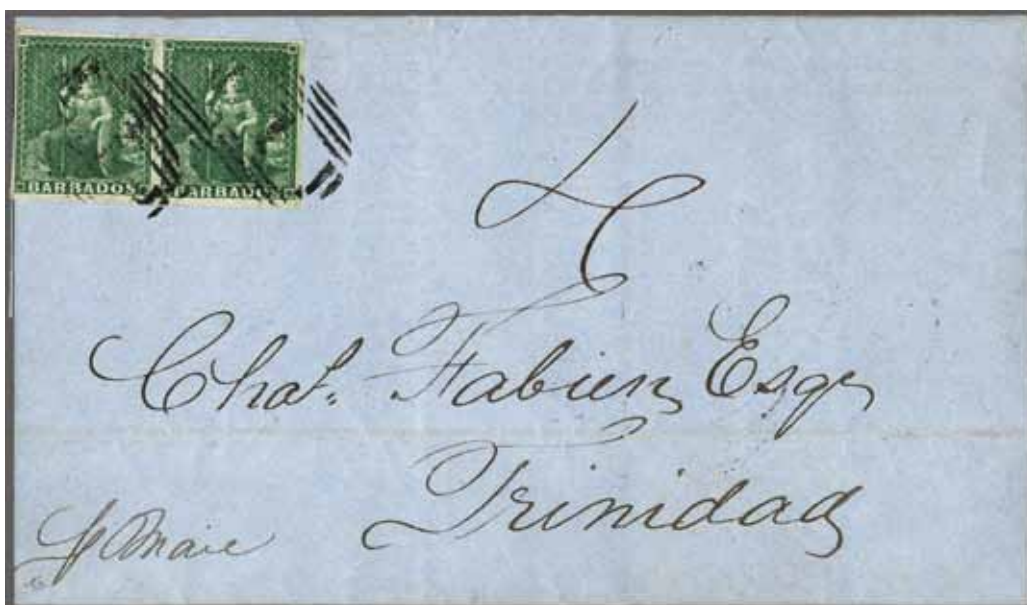 BARBADOS BARBADOS
Chas. Fabien Esqr
Trinidad